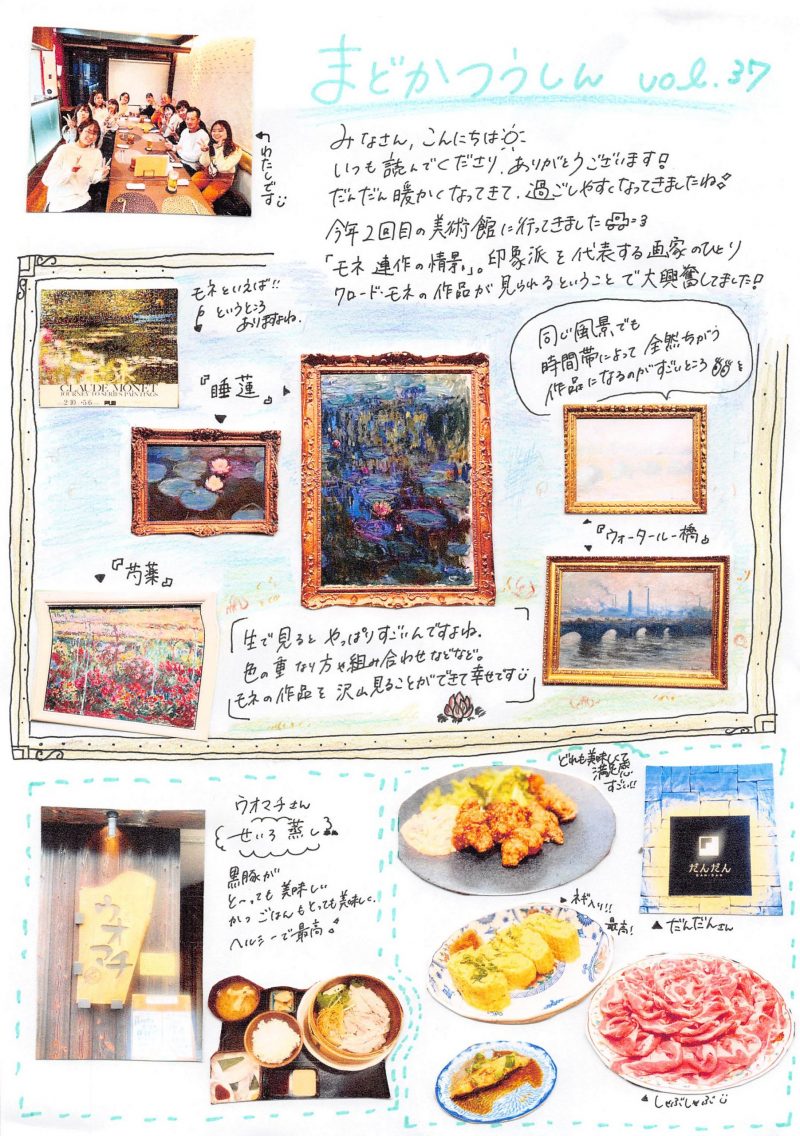 まどかつうしん vol.37
←わたしです
みなさん、こんにちは
いつも読んでくださり、ありがとうございます!
だんだん暖かくなってきて、過ごしやすくなってきましたね
今年2回目の美術館に行ってきました
「モネ 連作の情景」。印象派を代表する画家のひとり
クロード・モネの作品が見られるということで大興奮してました!
モネといえば!!
というところ
ありますよね。
CLAUDE MONET
JOURNEY TO SERIES PAINTINGS
同じ風景でも
時間帯によって全然ちがう
作品になるのがすごいところ
『睡蓮』
『ウォータールー橋』
『芍薬』
生で見ると やっぱりすごいんですよね。
色の重なり方や組み合わせなどなど。
モネの作品を沢山見ることができて幸せです
ウオマチさん
せいろ蒸し
黒豚が
と〜っても美味しい
かつ ごはんもとっても美味しく、
ヘルシーで最高!
ウオマチ
どれも美味しくて
満足感
すごい!!
だんだん
DANDAN
▲だんだんさん
ネギ入り!!
最高!
▲しゃぶしゃぶ